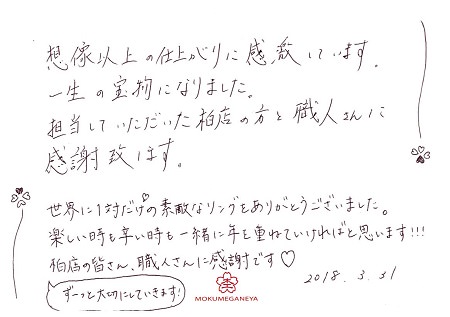 想像以上の仕上がりに感激しています。
一生の宝物になりました。
担当していただいた柏店の方と職人さんに
感謝致します。
世界に1対だけ♡の素敵なリングをありがとうございました。
楽しい時も辛い時も一緒に年を重ねていければと思います!!!
柏店の皆さん、職人さんに感謝です♡
ずーっと大切にしていきます!
MOKUMEGANEYA
2018. 3. 31